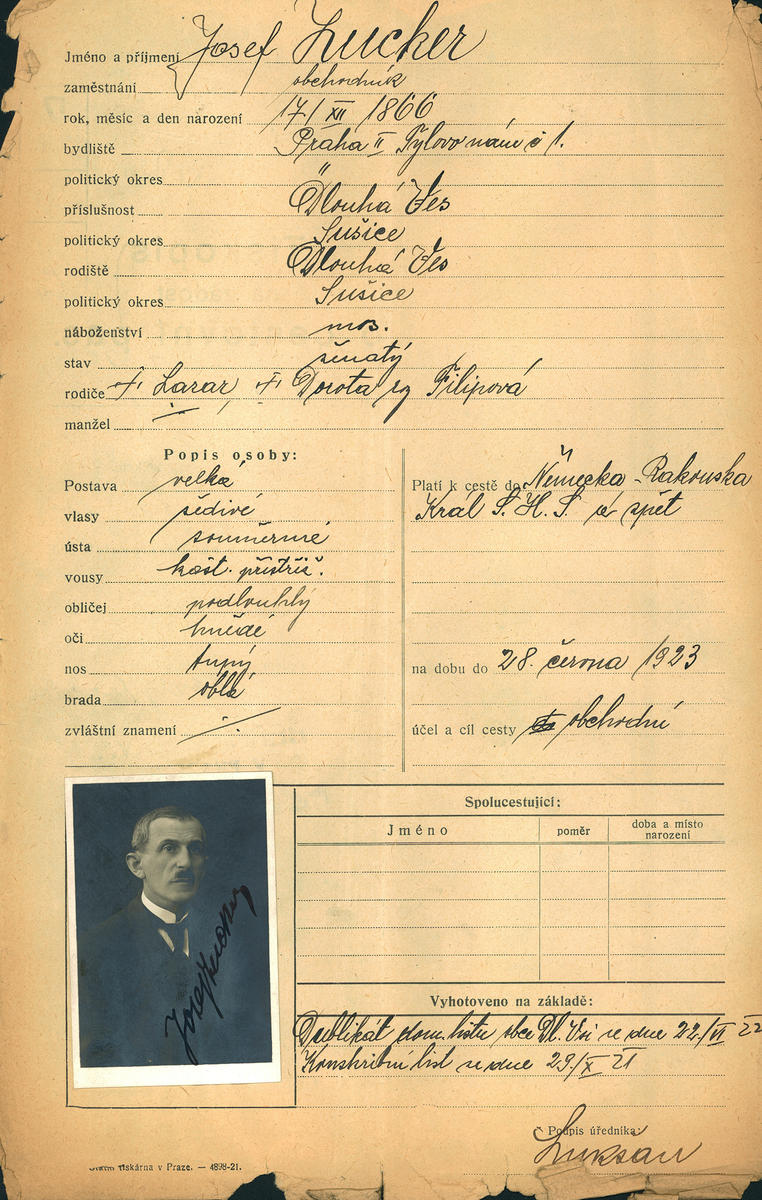 Jméno a příjmení Josef Zucker
zaměstnání obchodník
rok, měsíc a den narození 17/XII 1866
bydliště Praha II Tylovo nám č 1.
politický okres "
příslušnost Dlouhá Ves
politický okres Sušice
rodiště Dlouhá Ves
politický okres Sušice
náboženství mos.
stav ženatý
rodiče Lazar Dorota Filipová
manžel
Popis osoby:
Postava velká
vlasy šedivé
ústa souměrné
vousy kašt. přistřiž.
obličej podlouhlý
oči hnědé
nos tupý
brada oblá
zvláštní znamení ·/·
Platí k cestě do Německa - Rakouska
Král S. H. S. a zpět
na dobu do 28. června 1923
účel a cíl cesty obchodní
Spolucestující:
Jméno poměr doba a místo narození
Josef Zucker
Vyhotoveno na základě:
Duplikát dom. listu obce Dl. Vsi ze dne 22/VI 22
Konskribní list ze dne 29/X 21
Podpis úředníka:
tiskárna v Praze. — 4898-21.